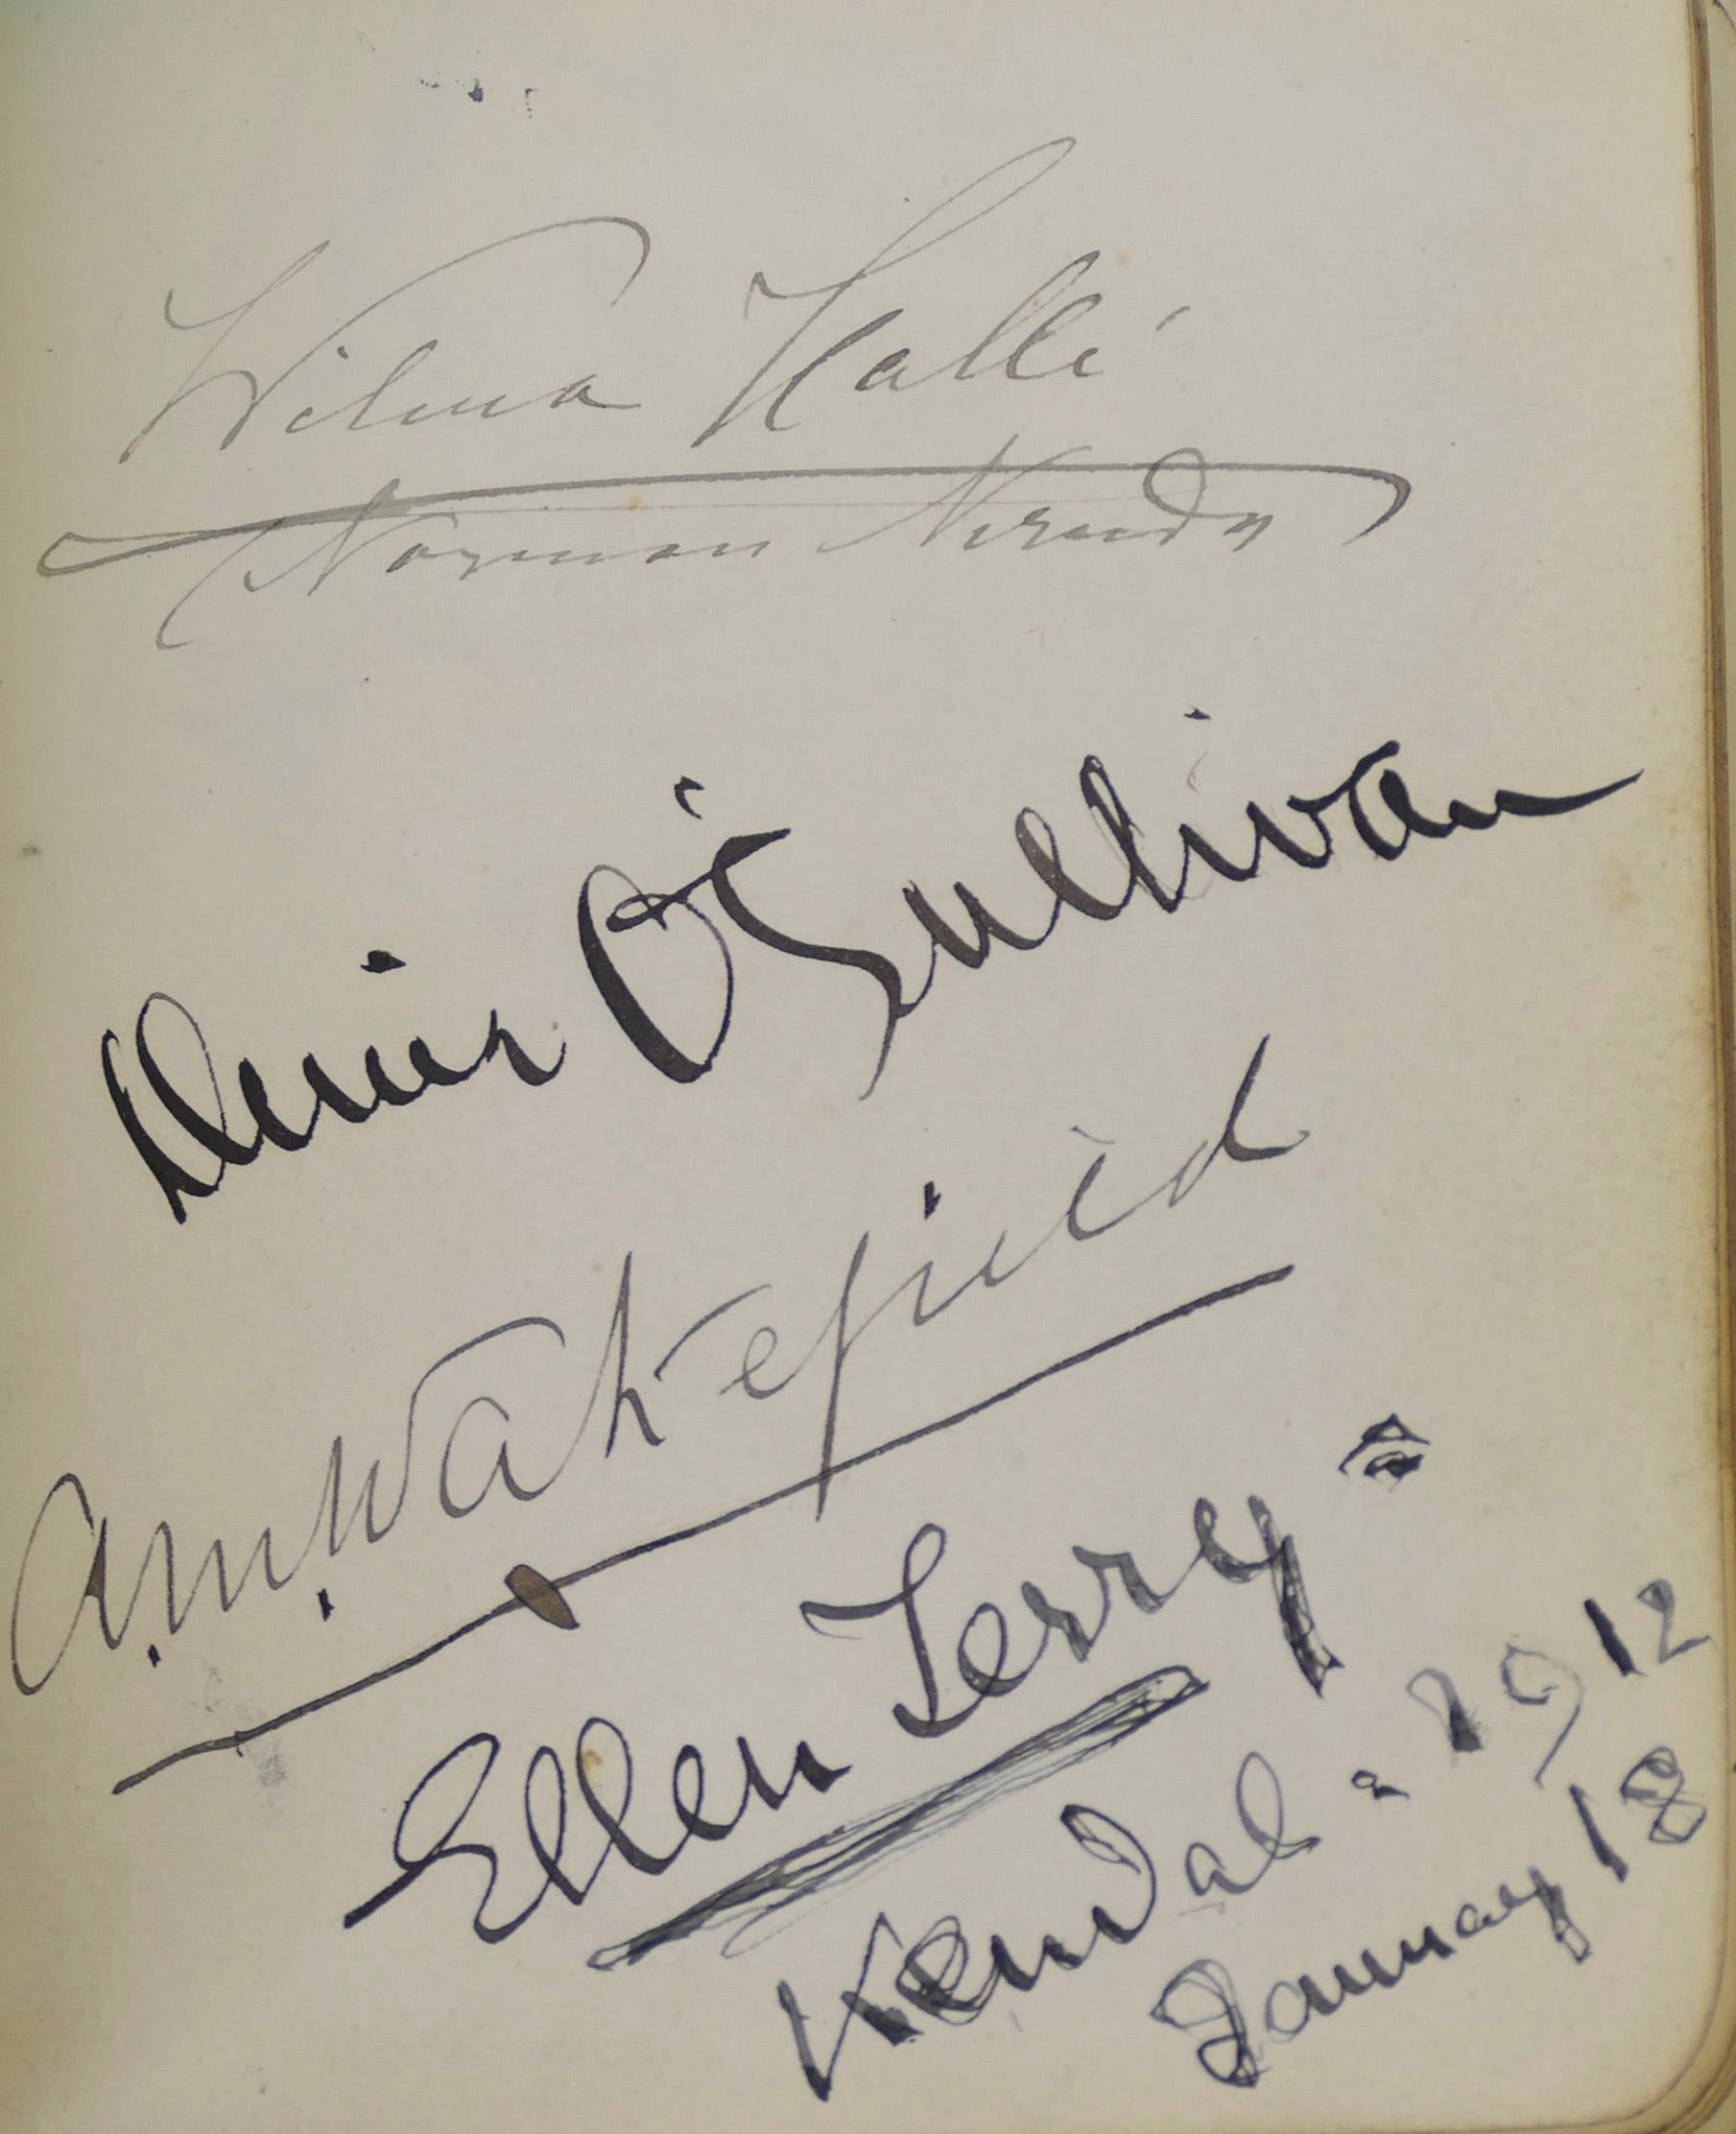 Wilma Hallé
Norman Neruda
Denis O'Sullivan
A.M. Wakefield
Ellen Terry
Kendal - 1912
January 18